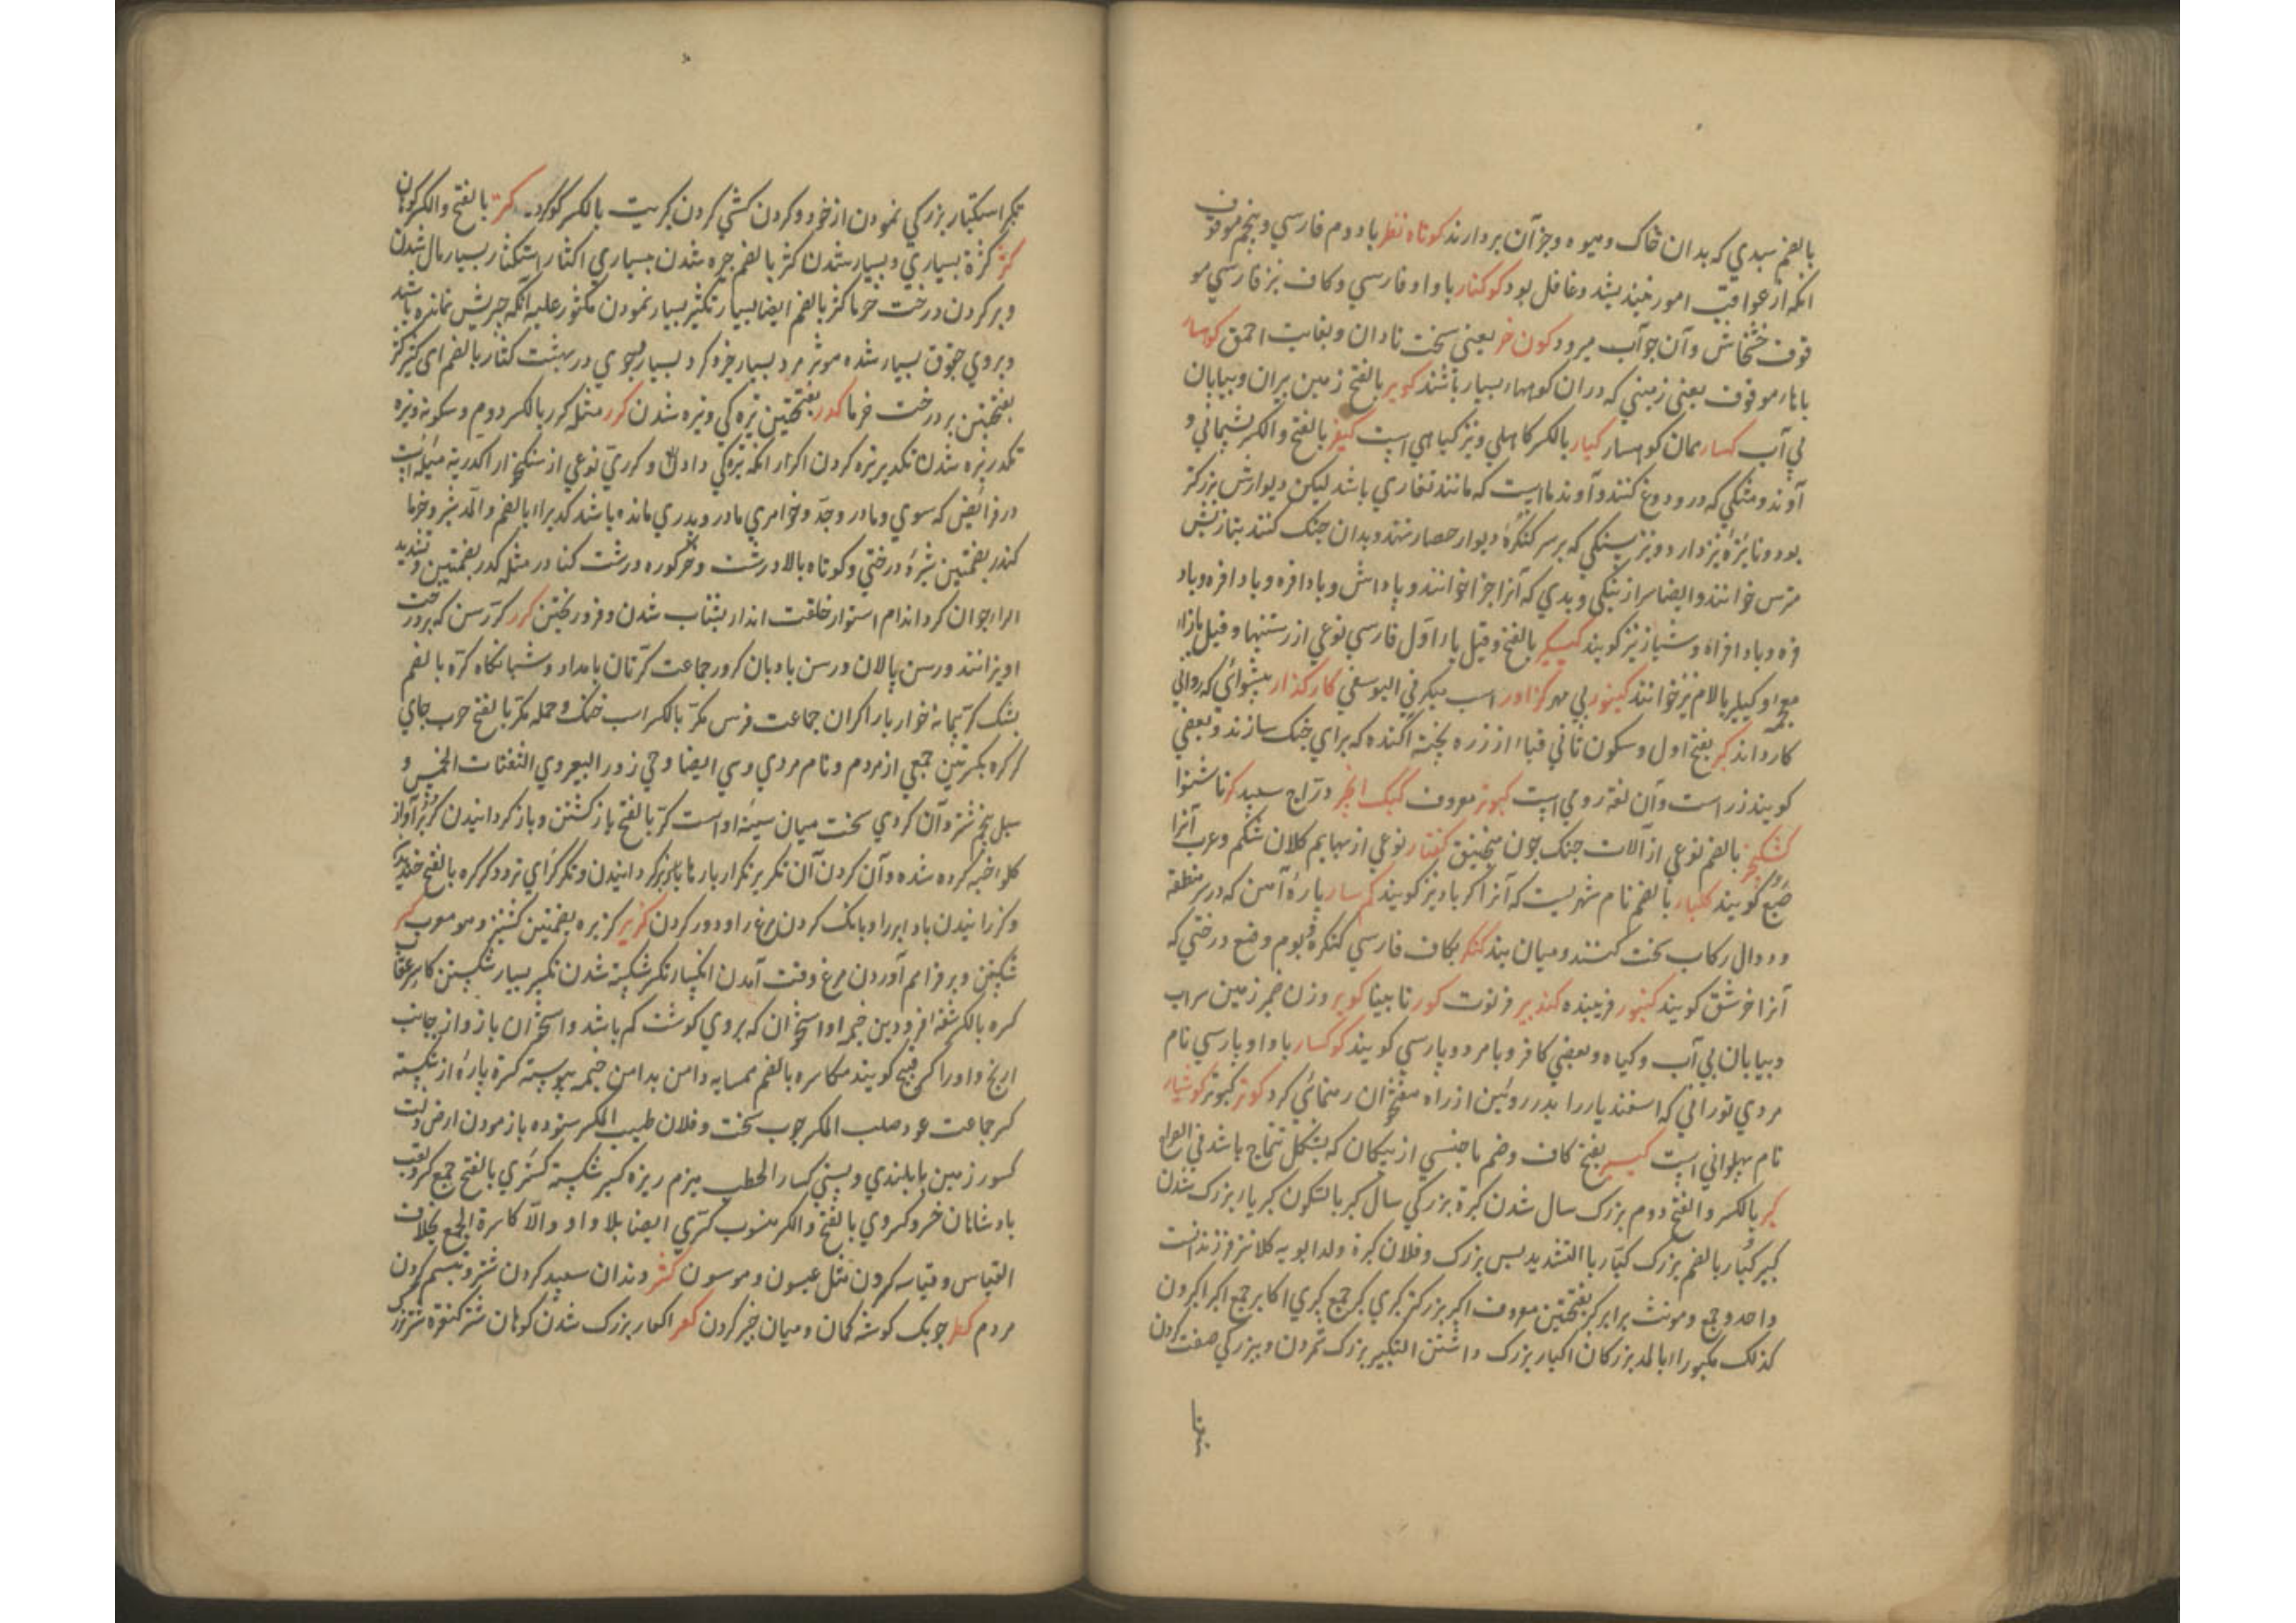 بالضم سبدي که بدان خاک و میوه و جز آن بردارند کوتاه نظر با دوم فارسي و پنجم موقوف
انکه از عواقب امور نیندیشد و غافل بود کوکنار با واو فارسي و کاف نیز فارسي مو
قوف خشخاش و آن جوآب میرود کون خر یعني سخت نادان و بغایت احمق کوهسار
با هاء موقوف یعني زمیني که در ان کوهها بسیار باشند کویر بالفتح زمین بران و بیابان
بي آب کسار همان کوهسار کیار بالکسر کاهلي و نیز کیاهي است کیفر بالفتح و الکسر پشیماني و
آوند و مشکي که درو دوغ کنند و آوند ماست که مانند تغاري باشد لیکن دیوارش بزرکتر
بود و نایژه نیز دارد و نیز سنکي که بر سر کنکره دیوار حصار نهند و بدان جنک کنند
خوانند و ایضا سزاء نیکي و بدي که آنرا جزا خوانند و پاداش و بادافره و باد افره و باد
فره و باد افراه و نیز کویند کیکر بالفتح و قیل با را اول فارسي نوعي از رستنیها و قیل بازاء
معجمه و کیلر بالام نیز خوانند کینور بي مهر کزاور اسب في الیوسفي کارکذار پیشوائي که رواني
کار داند کبر بفتح اول و سکون ثاني قباء از زره پخته آکنده که براي جنک سازند و بعضي
کویند زر است و آن لغة رومي است کبوتر معروف کبک انجیر دراج سپید کر ناشنوا
کشکنجیر بالضم نوعي از آلات جنک چون منجنیق کفتار نوعي از بهایم کلان شکم و عرب آنرا
ضبع کویند کلبار بالضم نام شهریست که آنرا کرباد نیز کویند کمسار پارهٔ آهن که در سر منطقه
و دوال رکاب سخت کنند و میان بند کنکر بکاف فارسي کنکره و بوم و صنع درختي که
آنرا خرشق کویند کنبور فریبنده کندپیر فرتوت کور نابینا کویر وزن ضمیر زمین سراب
و بیابان بي آب و کیاه و بعضي کافر و بامرد و پارسي کویند کوکسار با واو پارسي نام
مردي توراني که اسفندیار را بدر روئین از راه هفتخوان رهنمائي کرد کوتر کبوتر کوشیار
نام پهلواني است کیبر بفتح کاف و ضم با جنسي از پیکان که بشکل تتماج باشد في
کبر بالکسر و الفتح دوم بزرک سال شدن کبرة بزرکي سال کبر بالسکون کبریا بزرک شدن
کبیر کبار بالضم بزرک کبار با التشدید بس بزرک و فلان کبرة ولد ابویه کلانتر فرزندانست
واحد و جمع و مونث برابر کبر بفتحتین معروف اکبر بزرکتر کبري کبر جمع کبري اکابر جمع اکبر اکبرون
کذلک مکبوراء بالمد بزرکان اکبار بزرک داشتن التکبیر بزرک شمردن و ببزرکي صفت کردن
تکبر استکبار بزرکي نمودن از خود و کردن کشي کردن کبریت بالکسر کوکرد کتر بالفتح و الکسر کوهان
کثر کثرة بسیاري و بسیار شدن کثر بالضم چیره شدن ببسیاري اکثار استکثار بسیار مال شدن
و بر کردن درخت خرما کثر بالضم ایضا بسیار تکثیر بسیار نمودن مکثور علیه آنکه چیزش نمانده باشد
و بروي حقوق بسیار شده مکوثر مرد بسیار خیر و کرد بسیار و جوي در بهشت کثار بالضم اي کثیر کثر
بفتحتین بر درخت خرما کدر بفتحتین تیره کي و تیره شدن کدر مثله کدر بالکسر دوم و سکونه تیره
تکدر تیره شدن تکدیر تیره کردن
در فرائض که شوي و مادر و جد و خواهري مادر و پدري مانده باشد کدیراء بالضم و المد شیر و خرما
کندر بضمتین درختي و کوتاه بالا درشت و خر کوره درشت کنادر مثله کدر بضمتین و تشدید
الراء جوان کرد اندام استوار خلقت انکدار بشتاب شدن و فرو ریختن کرر کر رسن که بر درخت
اویزانند و رسن پالان و رسن بادبان کرور جماعت کرتان بامداد و شبانکاه کره بالضم
پشک کر پیمانه خوار بار اکرار جماعت فرس مکر بالکسر اسب جنک و حمله مکر بالفتح حرب جاي
کرکره بکسرتین جمعي از مردم و نام مردي و هي ایضا رحي زور البعیر و هي الثفنات الخمس و
سپل پنجم شتر و آن کردي سخت میان سینهٔ اوست کر بالفتح بازکشتن و باز کردانیدن کریر آواز
کلو خبه کرده شده و آن کردن تکریر تکرار بارها باز کردانیدن و تکرر تردد کرکره بالفتح خندیدن
و کردانیدن باد ابر را و بانک کردن مرغ را و دور کردن کزبر کزبره بضمتین کشنیز و هو معرب کسر
شکستن و پر فراهم آوردن مرغ وقت آمدن انکسار تکسر شکسته شدن تکسیر بسیار شکستن کاسر عقاب
کسره بالکسر شقه فرودین خیمه و استخوان که بروي کوشت کم باشد و استخوان بازو از جانب
ارنج و او را کسر قبیح کویند مکاسره بالضم همسایه دامن بدامن خیمه پیوسته کسرة پارهٔ از شکسته
کسر جماعت عود صلب المکسر چوب سخت و فلان طیب المکسر ستوده بازمودن ارض ذات
کسور زمین با بلندي و پستي کسار الحطب هیزم ریزه کسیر شکسته کسري بالفتح جمع کسري لقب
بادشاهان خسرو کسروي بالفتح و الکسر منسوب کسري ایضا بلا واو و الاکاسرة الجمع بخلاف
القیاس و قیاسه کسرون مثل عیسون و موسون کشر دندان سپید کردن شتر و تبسم کردن
مردم کظر چوبک کوشه کمان و میان خیر کردن کعر اکعار بزرک شدن کوهان شتر
بنا